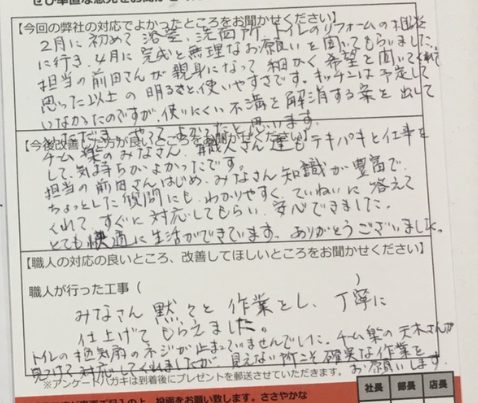 ぜひ率直な意見をお聞かせ
【今回の弊社の対応でよかったところをお聞かせください】
2月に初めて浴室、洗面所、トイレのリフォームの相談
に行き、4月に完成と無理なお願いを聞いてもらいました。
担当の前田さんが親身になって細かく希望を聞いてくれて
思った以上の明るさと、使いやすさです。キッチンは予定して
いなかったのですが、使いにくい不満を解消する案を出して
いただき、やってよかったと思います。
【今後改善した方が良いところをお聞かせください】
チーム楽のみなさん、職人さん達もテキパキと仕事を
して、気持ちがよかったです。
担当の前田さんはじめ、みなさん知識が豊富で、
ちょっとした質問にも、わかりやすく、ていねいに答えて
くれて、すぐに対応してもらい、安心できました。
とても快適に生活ができています。ありがとうございました。
【職人の対応の良いところ、改善してほしいところをお聞かせください】
職人が行った工事（ ）
みなさん黙々と作業をし、丁寧に
仕上げてもらえました。
トイレの換気扇のネジが止まっていませんでした。チーム楽の天木さんが
見つけて対応してくれましたが、見えない所こそ確実な作業を
お願いします。
※アンケートハガキは到着後にプレゼントを郵送させていただきます。
社長 部長 店長
の上、投函をお願い致します。ささやかな